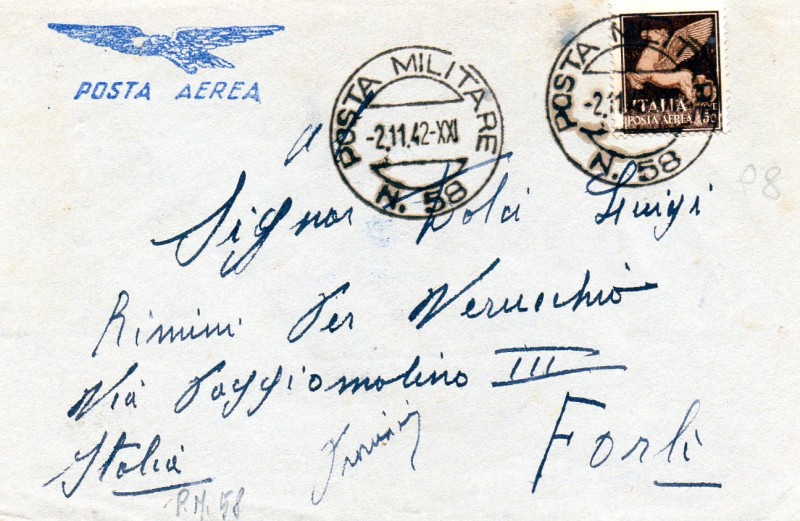 POSTA AEREA
POSTA MILITARE
-2.11.42-XXI
N. 58
POSTA MILIT
-2.11
N. 58
ITALIA
POSTA AEREA
50
a
Signor Dolci Luigi
Rimini Per Verucchio
Via Poggiomolino III
Italia
Forlì
P.M. 58